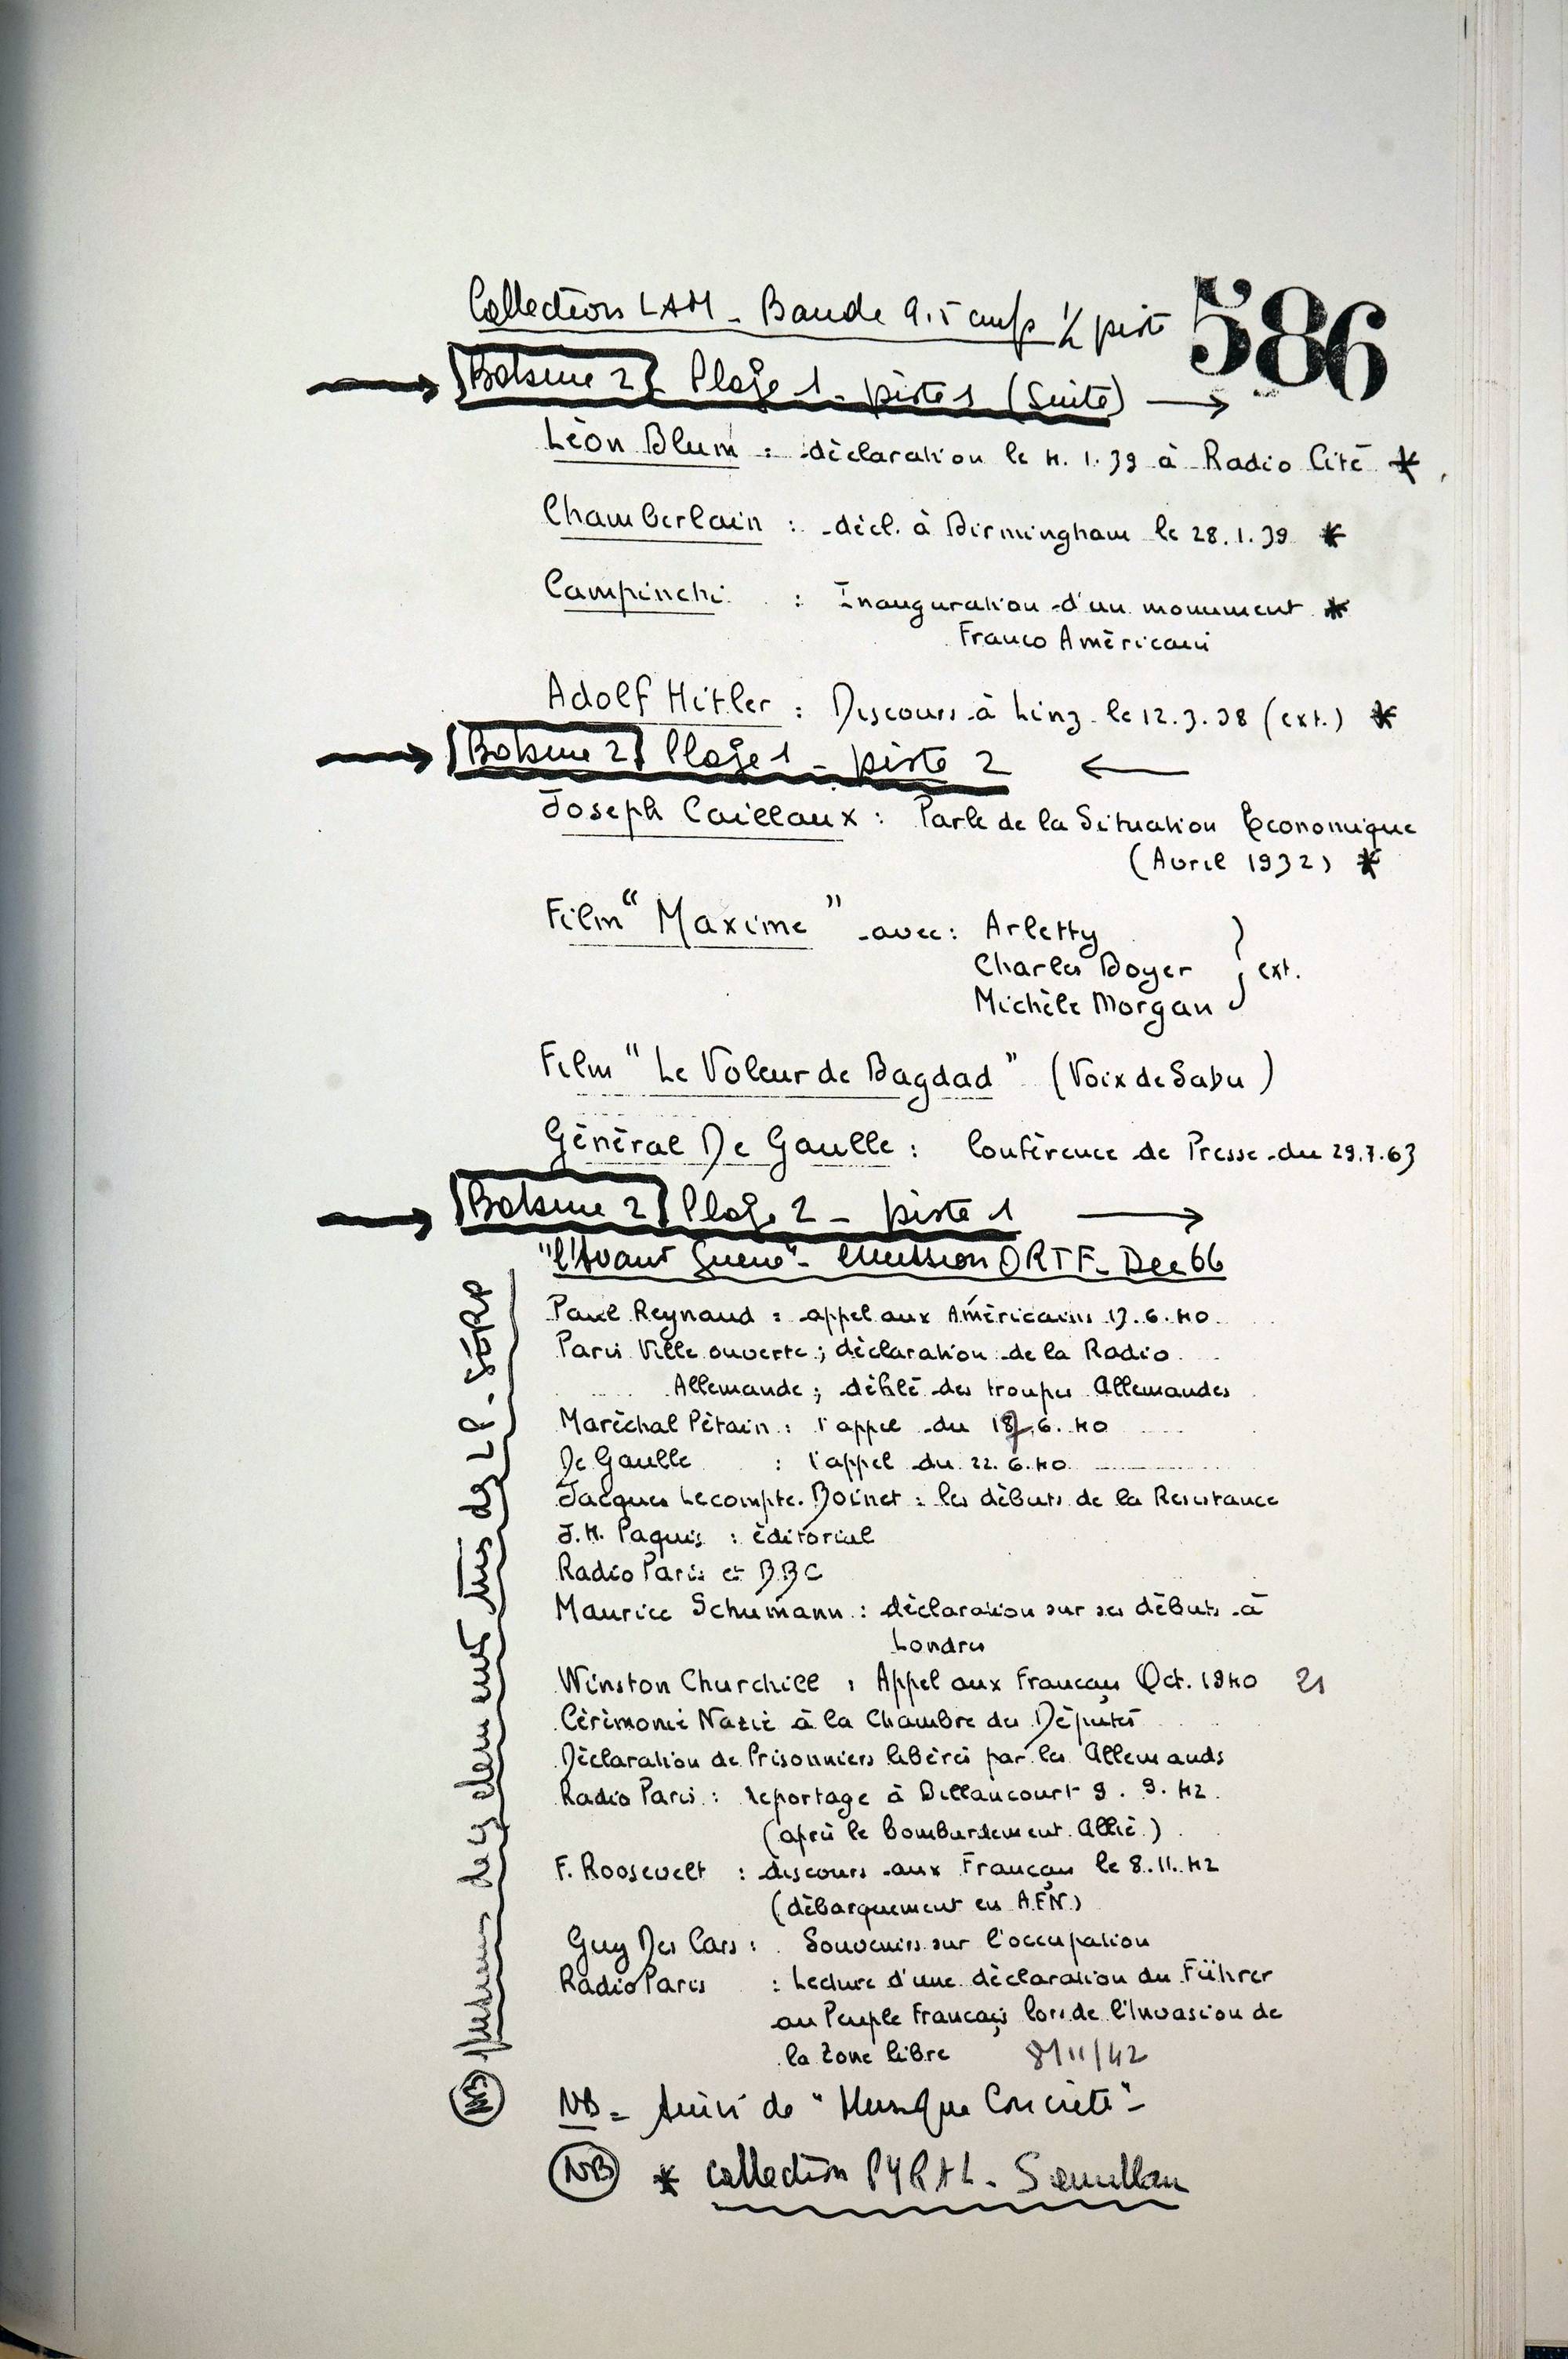 Collection LAM - Bande 9.5 cm/s 1/2 piste
586
Bobine 2 Plage 1 - piste 1 (Suite) →
Léon Blum : déclaration le 4.1.39 à Radio Cité *
Chamberlain : décl. à Birmingham le 28.1.39 *
Campinchi : Inauguration d'un monument *
Franco Américain
Adolf Hitler : Discours à Linz le 12.3.38 (ext.) *
Bobine 2 Plage 1 - piste 2 ←
Joseph Caillaux : Parle de la Situation Economique
(Avril 1932) *
Film "Maxime" avec : Arletty
Charles Boyer } ext.
Michèle Morgan
Film "Le Voleur de Bagdad" (Voix de Sabu)
Général De Gaulle : Conférence de Presse du 29.7.63
Bobine 2 Plage 2 - piste 1 →
"l'Avant Guerre" - emission ORTF - Dec 66
Paul Reynaud : appel aux Américains 13.6.40
Paris Ville ouverte ; déclaration de la Radio
Allemande ; défilé des troupes Allemandes
Maréchal Pétain : l'appel du 17.6.40
De Gaulle : l'appel du 22.6.40
Jacques Lecompte-Boinet : les débuts de la Resistance
J.H. Paquis : éditorial
Radio Paris et BBC
Maurice Schumann : déclaration sur ses débuts à
Londres
Winston Churchill : Appel aux Francais Oct. 1940 21
Cérémonie Nazie à la Chambre des Députés
Déclaration de Prisonniers libérés par les Allemands
Radio Paris : reportage à Billancourt 9.9.42
(après le bombardement Allié)
F. Roosevelt : discours aux Français le 8.11.42
(débarquement en AFN)
Guy Des Cars : Souvenirs sur l'occupation
Radio Paris : Lecture d'une déclaration du Führer
au Peuple Français lors de l'Invasion de
la Zone libre 8/11/42
NB = Suivi de "Musique Concrète" -
NB * collection PYRAL -
NB Plusieurs de ces elements tirés des LP. SERP